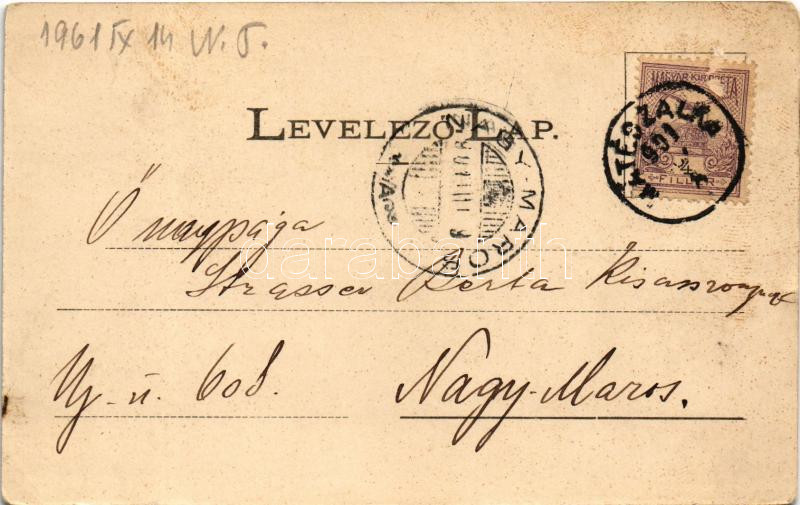 1961 IX 14
LEVELEZŐ-LAP.
MAGYAR KIR. POSTA
FILLÉR
MÁTÉSZALKA
901
NAGY-MAROS
Ő nagysága
Strasser Berta Kisasszonynak
darabanth
Uj-u. 608.
Nagy-Maros.